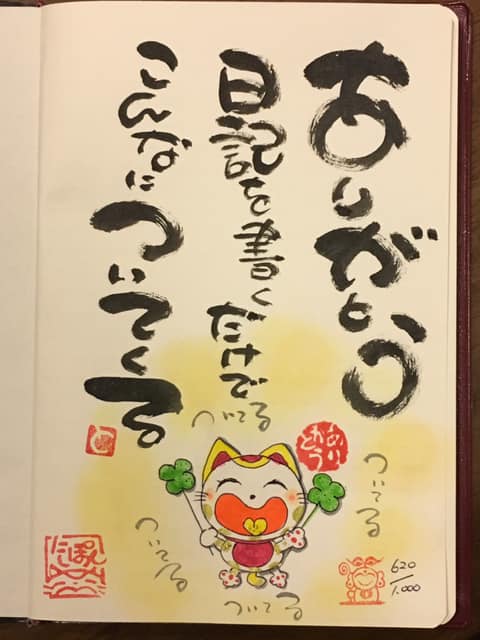 ありがとう
日記を書くだけで
こんなについてくる
ついてる
ついてる
ついてる
ついてる
ありがとう
にっぽん
620/1.000